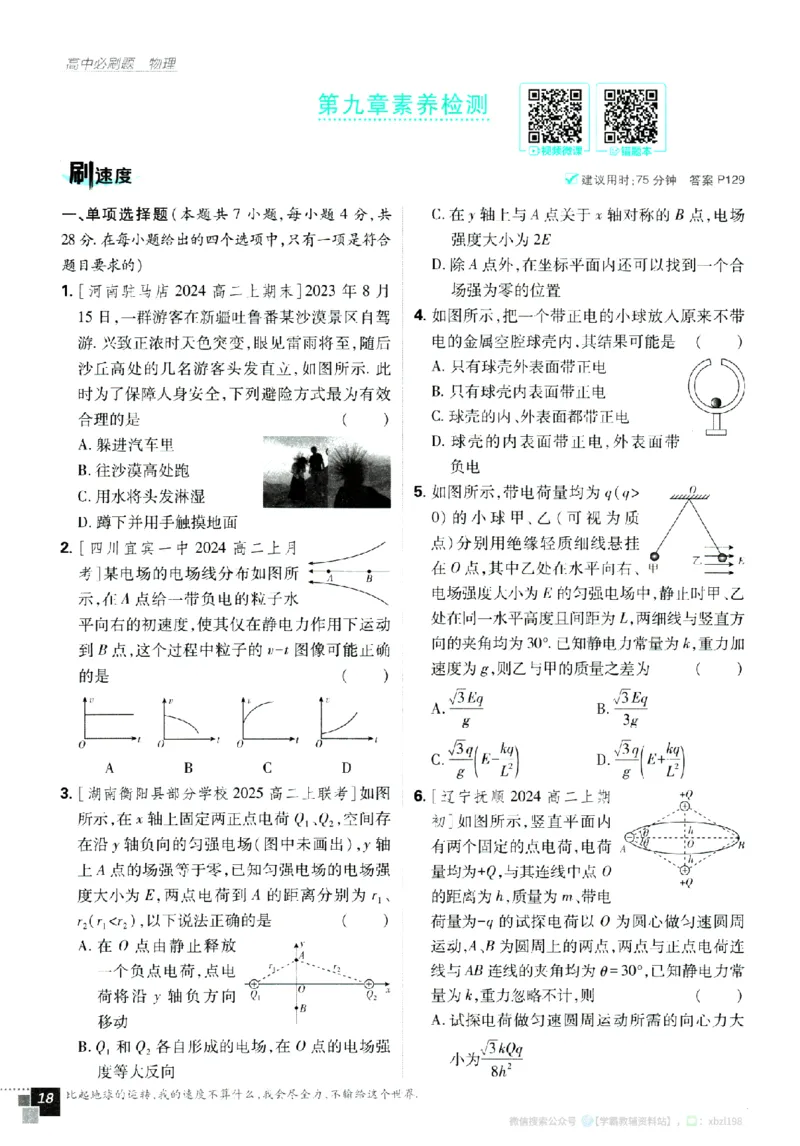 高中必刷题 物理
第九章素养检测
视频微课
错题本
刷速度
建议用时:75分钟 答案P129
一、单项选择题(本题共7小题,每小题4分,共
28分.在每小题给出的四个选项中,只有一项是符合
题目要求的)
1. [河南驻马店2024高二上期末]2023年8月
15日,一群游客在新疆吐鲁番某沙漠景区自驾
游.兴致正浓时天色突变,眼见雷雨将至,随后
沙丘高处的几名游客头发直立,如图所示.此
时为了保障人身安全,下列避险方式最为有效
合理的是 ( )
A. 躲进汽车里
B. 往沙漠高处跑
C. 用水将头发淋湿
D. 蹲下并用手触摸地面
2. [四川宜宾一中2024高二上月
考]某电场的电场线分布如图所
示,在A点给一带负电的粒子水
平向右的初速度,使其仅在静电力作用下运动
到B点,这个过程中粒子的v-t图像可能正确
的是 ( )
A B
v v v v
O t O t O t O t
A B C D
3. [湖南衡阳县部分学校2025高二上联考]如图
所示,在x轴上固定两正点电荷Q₁、Q₂,空间存
在沿y轴负向的匀强电场(图中未画出),y轴
上A点的场强等于零,已知匀强电场的电场强
度大小为E,两点电荷到A的距离分别为r₁、
r₂(r₁<r₂),以下说法正确的是 ( )
A. 在O点由静止释放
一个负点电荷,点电
荷将沿y轴负方向
移动
y
A
r₁ r₂
Q₁ O Q₂ x
B
B. Q₁和Q₂各自形成的电场,在O点的电场强
度等大反向
C. 在y轴上与A点关于x轴对称的B点,电场
强度大小为2E
D. 除A点外,在坐标平面内还可以找到一个合
场强为零的位置
4. 如图所示,把一个带正电的小球放入原来不带
电的金属空腔球壳内,其结果可能是 ( )
A. 只有球壳外表面带正电
B. 只有球壳内表面带正电
C. 球壳的内、外表面都带正电
D. 球壳的内表面带正电,外表面带
负电
5. 如图所示,带电荷量均为q(q>
0)的小球甲、乙(可视为质
点)分别用绝缘轻质细线悬挂
在O点,其中乙处在水平向右、
电场强度大小为E的匀强电场中,静止时甲、乙
处在同一水平高度且间距为L,两细线与竖直方
向的夹角均为30°.已知静电力常量为k,重力加
速度为g,则乙与甲的质量之差为 ( )
O
甲 乙 E
A. √3Eq/g B. √3Eq/3g
C. √3q/g(E-kq/L²) D. √3q/g(E+kq/L²)
6. [辽宁抚顺2024高二上期
初]如图所示,竖直平面内
有两个固定的点电荷,电荷
量均为+Q,与其连线中点O
的距离为h,质量为m、带电
荷量为-q的试探电荷以O为圆心做匀速圆周
运动,A、B为圆周上的两点,两点与正点电荷连
线与AB连线的夹角均为θ=30°,已知静电力常
量为k,重力忽略不计,则 ( )
+Q
h
θ
A O B
θ
h
+Q
A. 试探电荷做匀速圆周运动所需的向心力大
小为√3kQq/8h²
18 比起地球的运转,我的速度不算什么,我会尽全力,不输给这个世界.
微信搜索公众号【学霸教辅资料站】, : xbzl198